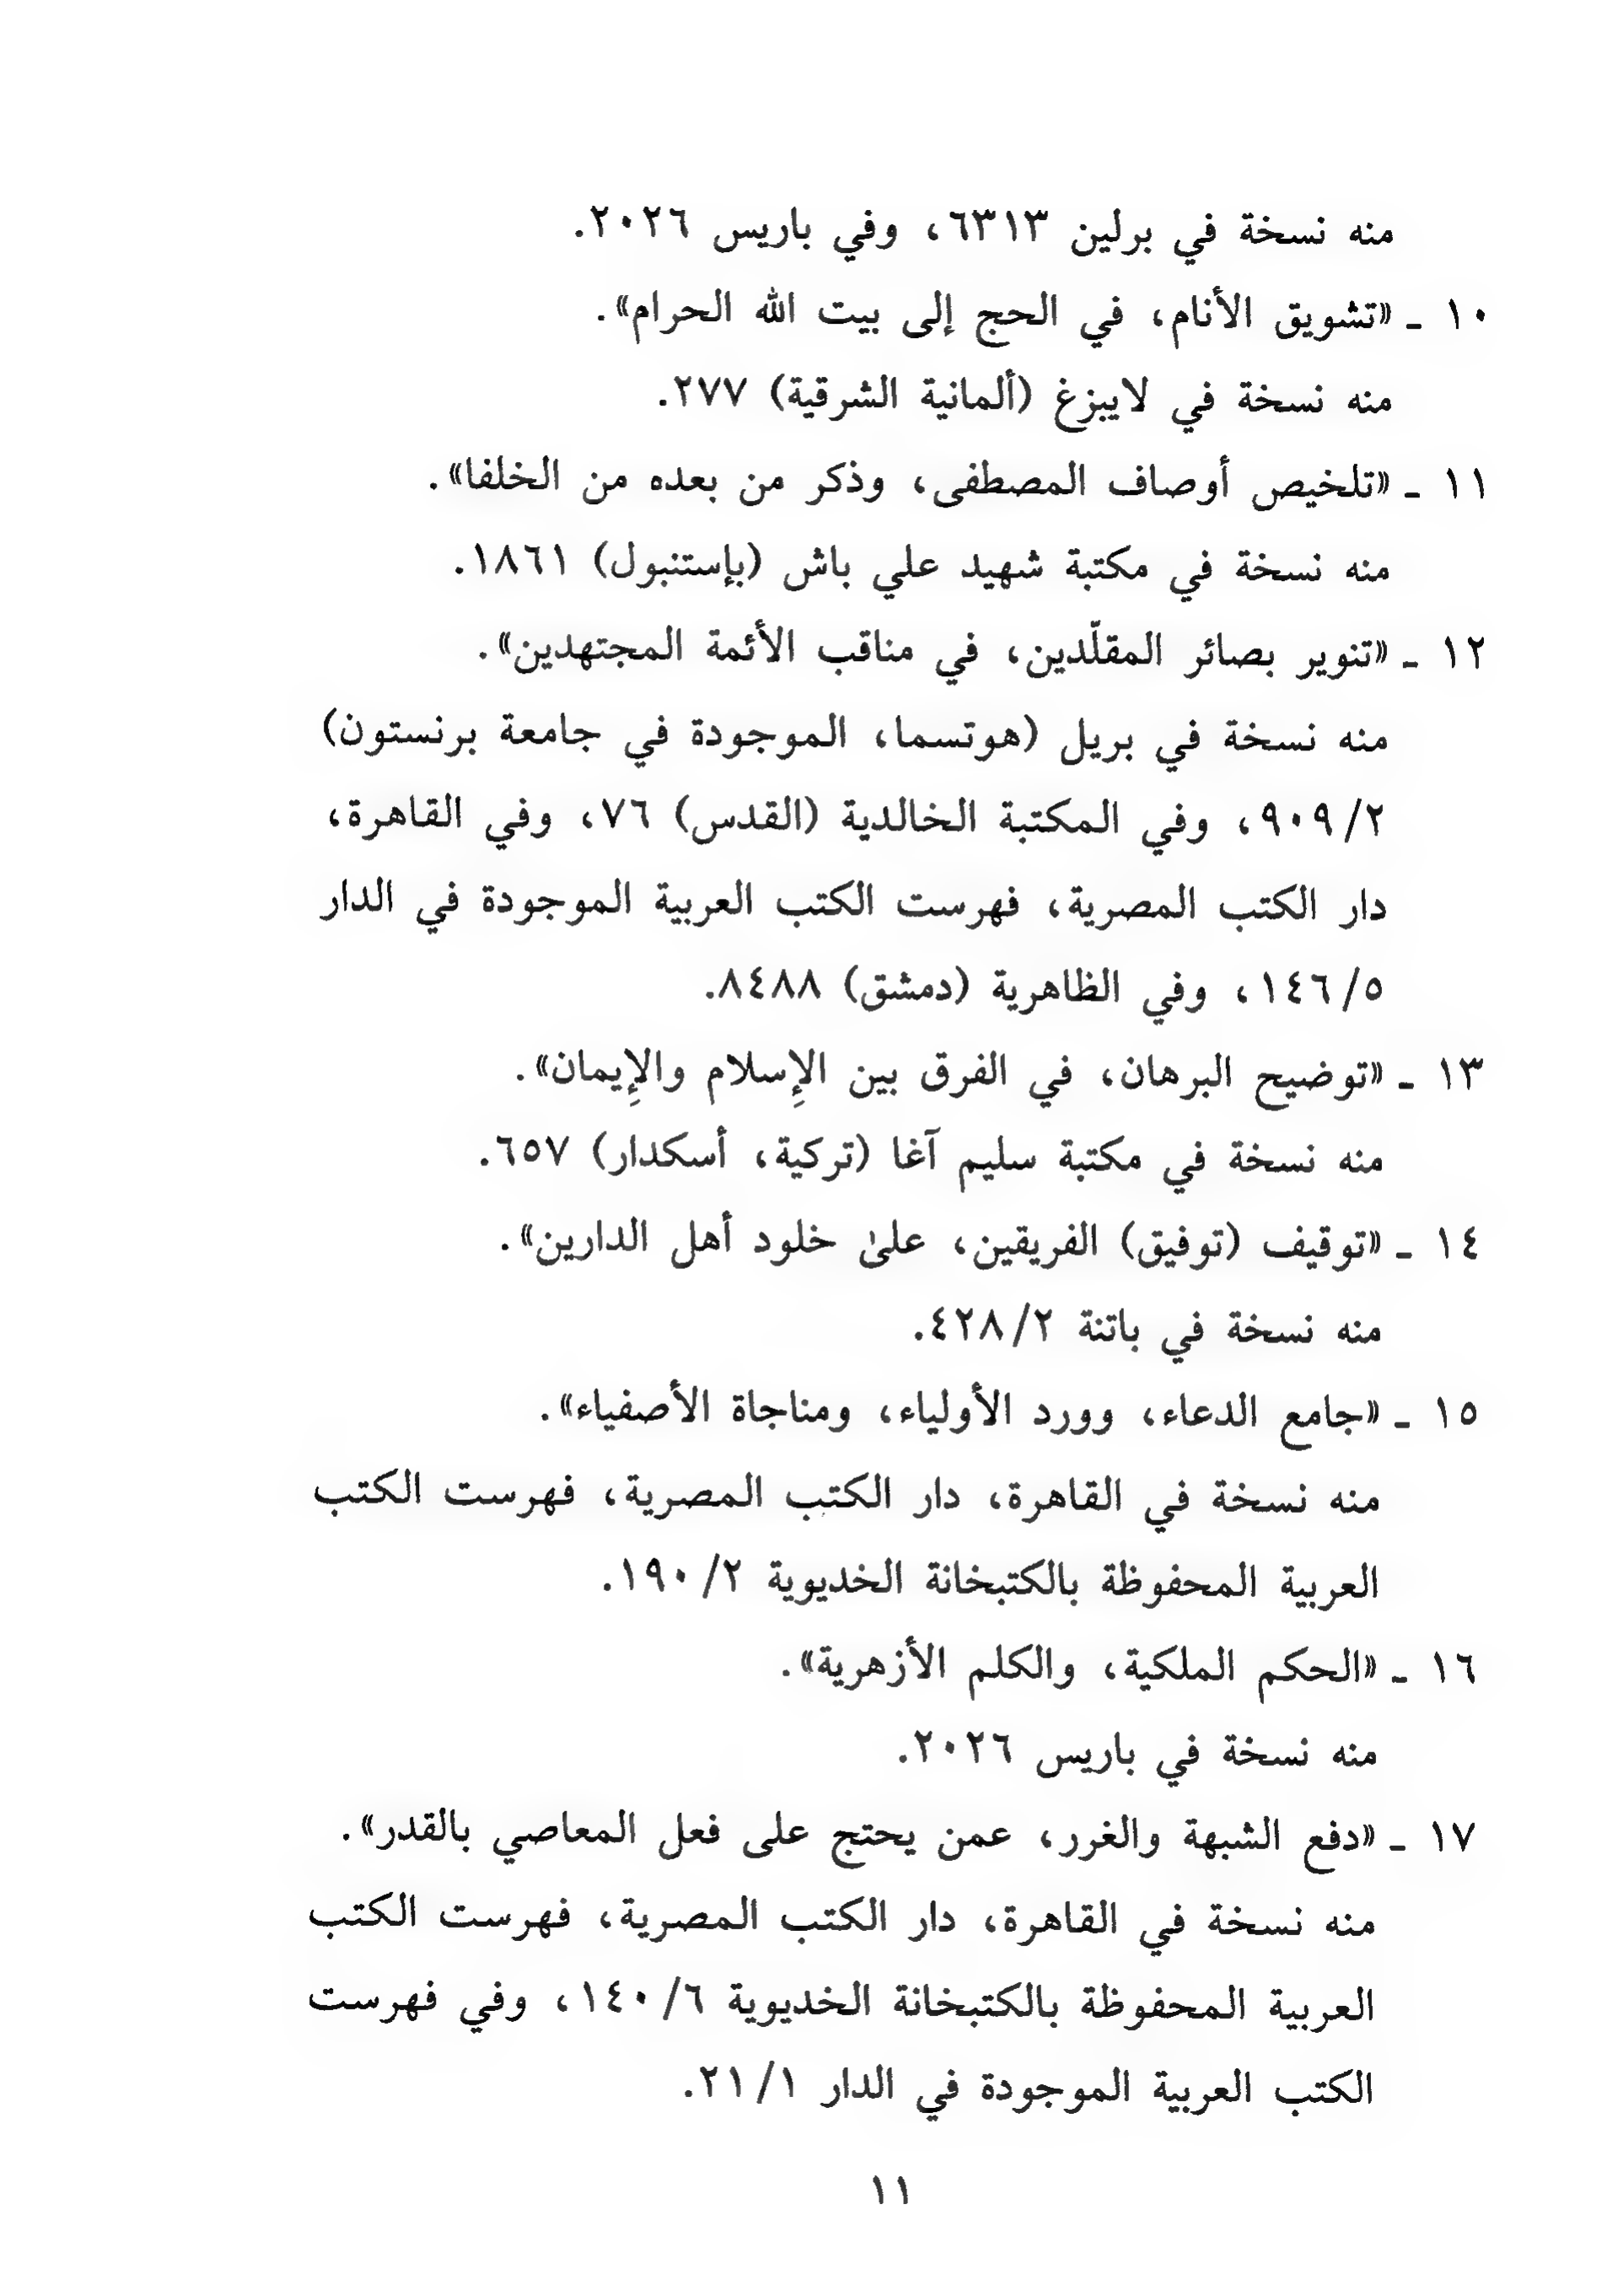 منه نسخة في برلين ٦٣١٣، وفي باريس ٢٠٢٦.
١٠ ـ «تشويق الأنام، في الحج إلى بيت الله الحرام».
منه نسخة في لايبزغ (ألمانية الشرقية) ٢٧٧.
١١ ـ «تلخيص أوصاف المصطفى، وذكر من بعده من الخلفا».
منه نسخة في مكتبة شهيد علي باش (بإستنبول) ١٨٦١.
١٢ ـ «تنوير بصائر المقلّدين، في مناقب الأئمة المجتهدين».
منه نسخة في بريل (هوتسما، الموجودة في جامعة برنستون)
٩٠٩/٢، وفي المكتبة الخالدية (القدس) ٧٦، وفي القاهرة،
دار الكتب المصرية، فهرست الكتب العربية الموجودة في الدار
١٤٦/٥، وفي الظاهرية (دمشق) ٨٤٨٨.
١٣ ـ «توضيح البرهان، في الفرق بين الإِسلام والإِيمان».
منه نسخة في مكتبة سليم آغا (تركية، أسكدار) ٦٥٧.
١٤ ـ «توقيف (توفيق) الفريقين، علىٰ خلود أهل الدارين».
منه نسخة في باتنة ٤٢٨/٢.
١٥ ـ «جامع الدعاء، وورد الأولياء، ومناجاة الأصفياء».
منه نسخة في القاهرة، دار الكتب المصرية، فهرست الكتب
العربية المحفوظة بالكتبخانة الخديوية ١٩٠/٢.
١٦ ـ «الحكم الملكية، والكلم الأزهرية».
منه نسخة في باريس ٢٠٢٦.
١٧ ـ «دفع الشبهة والغرر، عمن يحتج على فعل المعاصي بالقدر».
منه نسخة في القاهرة، دار الكتب المصرية، فهرست الكتب
العربية المحفوظة بالكتبخانة الخديوية ١٤٠/٦، وفي فهرست
الكتب العربية الموجودة في الدار ٢١/١.
١١